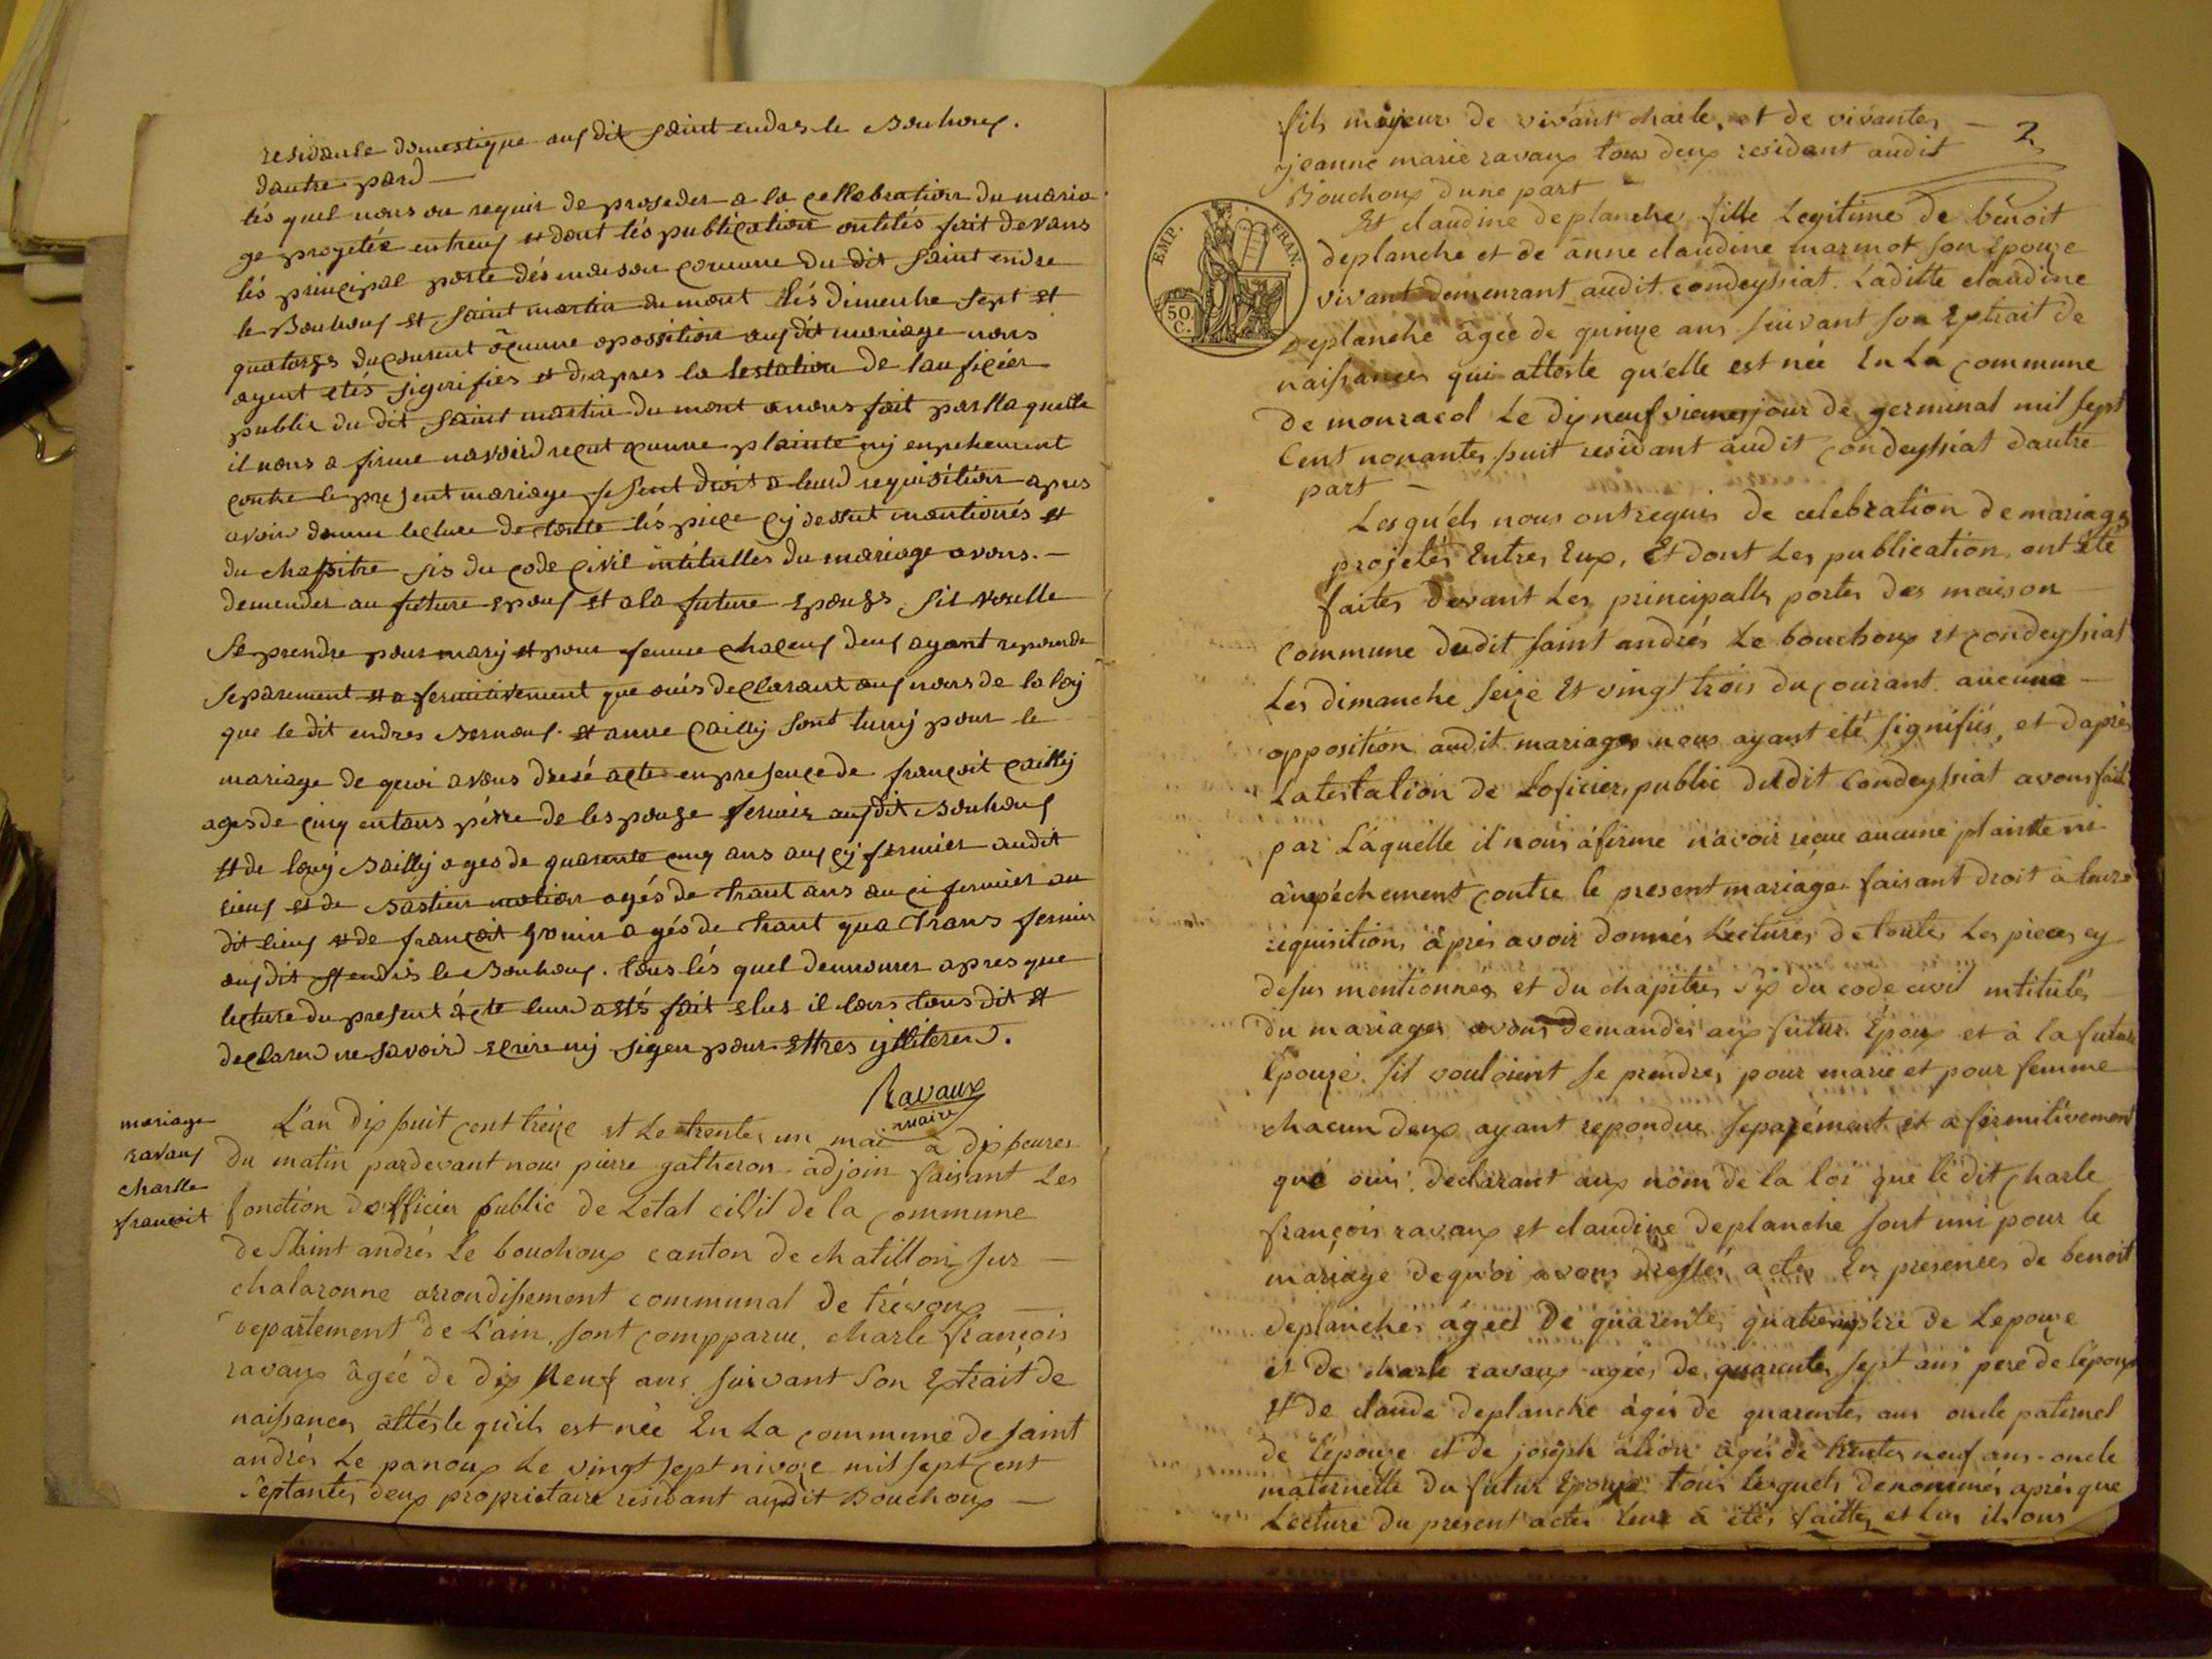 residante domestique aux dit saint endre le Bouhoux.
dautre pard
lés quel nous on requir de proseder a la cellebration du maria
ge projetée entreux et dont lés publication ontétés fait devans
lés principal porte dés maison comune du dit saint endre
le Bouhoux et saint martin du mont lés dimenhe sept et
quatorzs du courent ocunne oposition aux dit mariage nous
ayent etés signifiés et daprès la testation de laufiçiér
public du dit saint martin du mont a nous fait par llaquelle
il nous a firme navoird reçut ocunne plainte nij enpehement
contre le present mariage fesent droit a leurd requisitiõn apres
avoir donne lecture de toute lés pièçe cij dessut mantionés et
du chapitre sis du code çivil intitulles du mariage avons. —
demender au future epoux et a la future epouzs sil voulle
se prendre pour marij et pour femme chaquns deux ayant reponde
separement et a fermitivement que ouis declarant aux nons de la loij
que le dit endres Bernoux et anne Cailly sont tunij pour le
mariage de quoi avons dresé acte en presençe de françoit Cailly
ages de çinq entans pérre de lespouze fermir aux dit Bouhoux
et de louij Baillij ages de quarente çinq ans aux çij fermiér audit
lieux et de Bastien motion agés de trant ans au çi fermier au
dit lieux et de françoit gonin agés de trant quatrans fermir
aux dit st endrés le Bouhoux. tous lés quel dennomer apres que
lecture du present acte leurd a étés fait elus il lons tous dit et
declared ne savoird ecrire nij signeu pour ettres ijlliterer.
Ravaux
maire
mariage
ravaux
charlle
françoit
L'an dix huit cent treize et le trentes un mai à dix heures
du matin pardevant nous pierre gatheron adjoin faisant les
fonction d'officier public de Letat civil de la commune
de Saint andrés Le bouchoux canton de chatillon sur —
chalaronne arrondissement communal de trévoux —
departement de L'ain, sont compparue, charle françois
ravaux âgée de dix Neuf ans suivant son Extrait de
naissances attésté qu'ils est née En La commune de saint
andrés Le panoux Le vingt sept nivoze mil sept cent
septantes deux proprietaire résidant audit Bouchoux —
2
fils majeur de vivant charle, et de vivantes —
jeanne marie ravaux tous deux resident audit
Bouchoux dune part —
EMP. FRAN.
50. C.
Et claudine deplanche fille Legitime de bénoit
deplanche et de anne claudine marmot son Epouze
vivant demeurant audit condeyssiat. Laditte claudine
deplanche âgée de quinze ans suivant son Extrait de
naissances qui atteste qu'elle est née En La commune
de monracol Le dixneufviemes jour de germinal mil sept
Cent nonantes huit residant audit condeyssiat dautre
part —
Lesqu'els nous ont requis de celebration de mariages
projetés Entres Eux, Et dont Les publication, ont Eté
faites devant Les principalls portes des maison —
Commune dudit saint andrés Le bouchoux et condeyssiat
Les dimanche seize Et vingt trois du courant aucuna —
opposition audit mariages nous ayant été signifiés, et daprès
Latestation de Loficier, public dudit Condeyssiat avons fait
par Laquelle il nous áfirme n'avoir réçue aucune plainte ni
ànpéchement contre le present mariage. faisant droit à leurs
requisition, âprés avoir donnés Lectures, de toutes Les pieces cy
desus mentionnes et du chapitres six du code civil intitulés —
du mariages avons demandes aux futur Époux et à la future
Epouze. sil vouloient se prendres pour marie et pour femme
chacun deux ayant repondue separément et a firmitivement
qué ouis. declarant aux nom de la loi que le dit charle
françois ravaux et claudine deplanche sont uni pour le
mariage dequ'oi avons dressés actes En presences de benoit
deplanches âgéd de quarentes quatre père de Lepouze
et de charle ravaux agées de quarentes sept ans pere de l'époux
et de claude deplanche âgés de quarentes ans oncle paternel
de l'épouze et de joséph alion âgés de trentes neuf ans oncle
maternelle du futur Epoux tous lesquels denommés après que
Lecture du present actes leur à étés faittes et lus ils ons